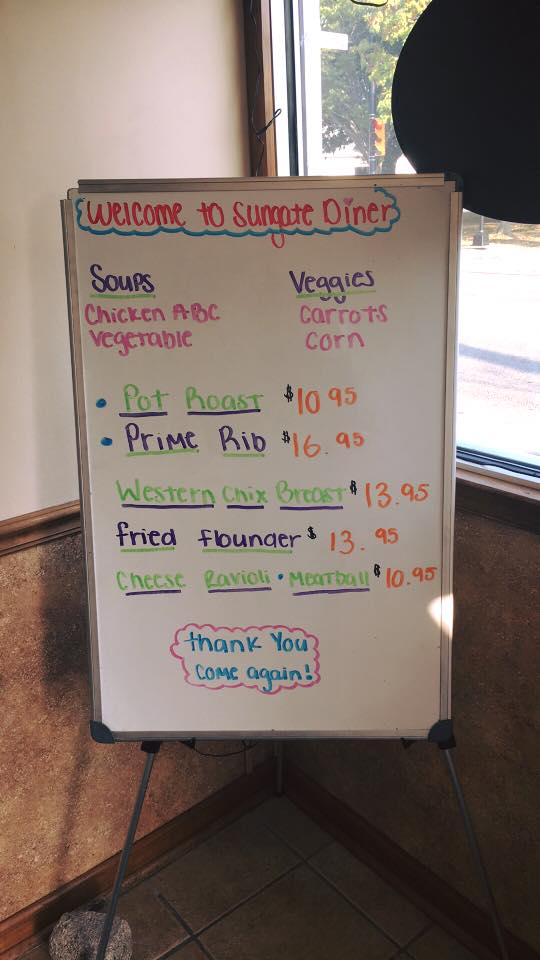 Welcome to Sungate Diner
Soups
Veggies
Chicken ABC
Carrots
Vegetable
Corn
• Pot Roast $10 95
• Prime Rib $16.95
Western Chix Breast $13.95
fried flounder $13.95
Cheese Ravioli • Meatball $10.95
thank You
come again!